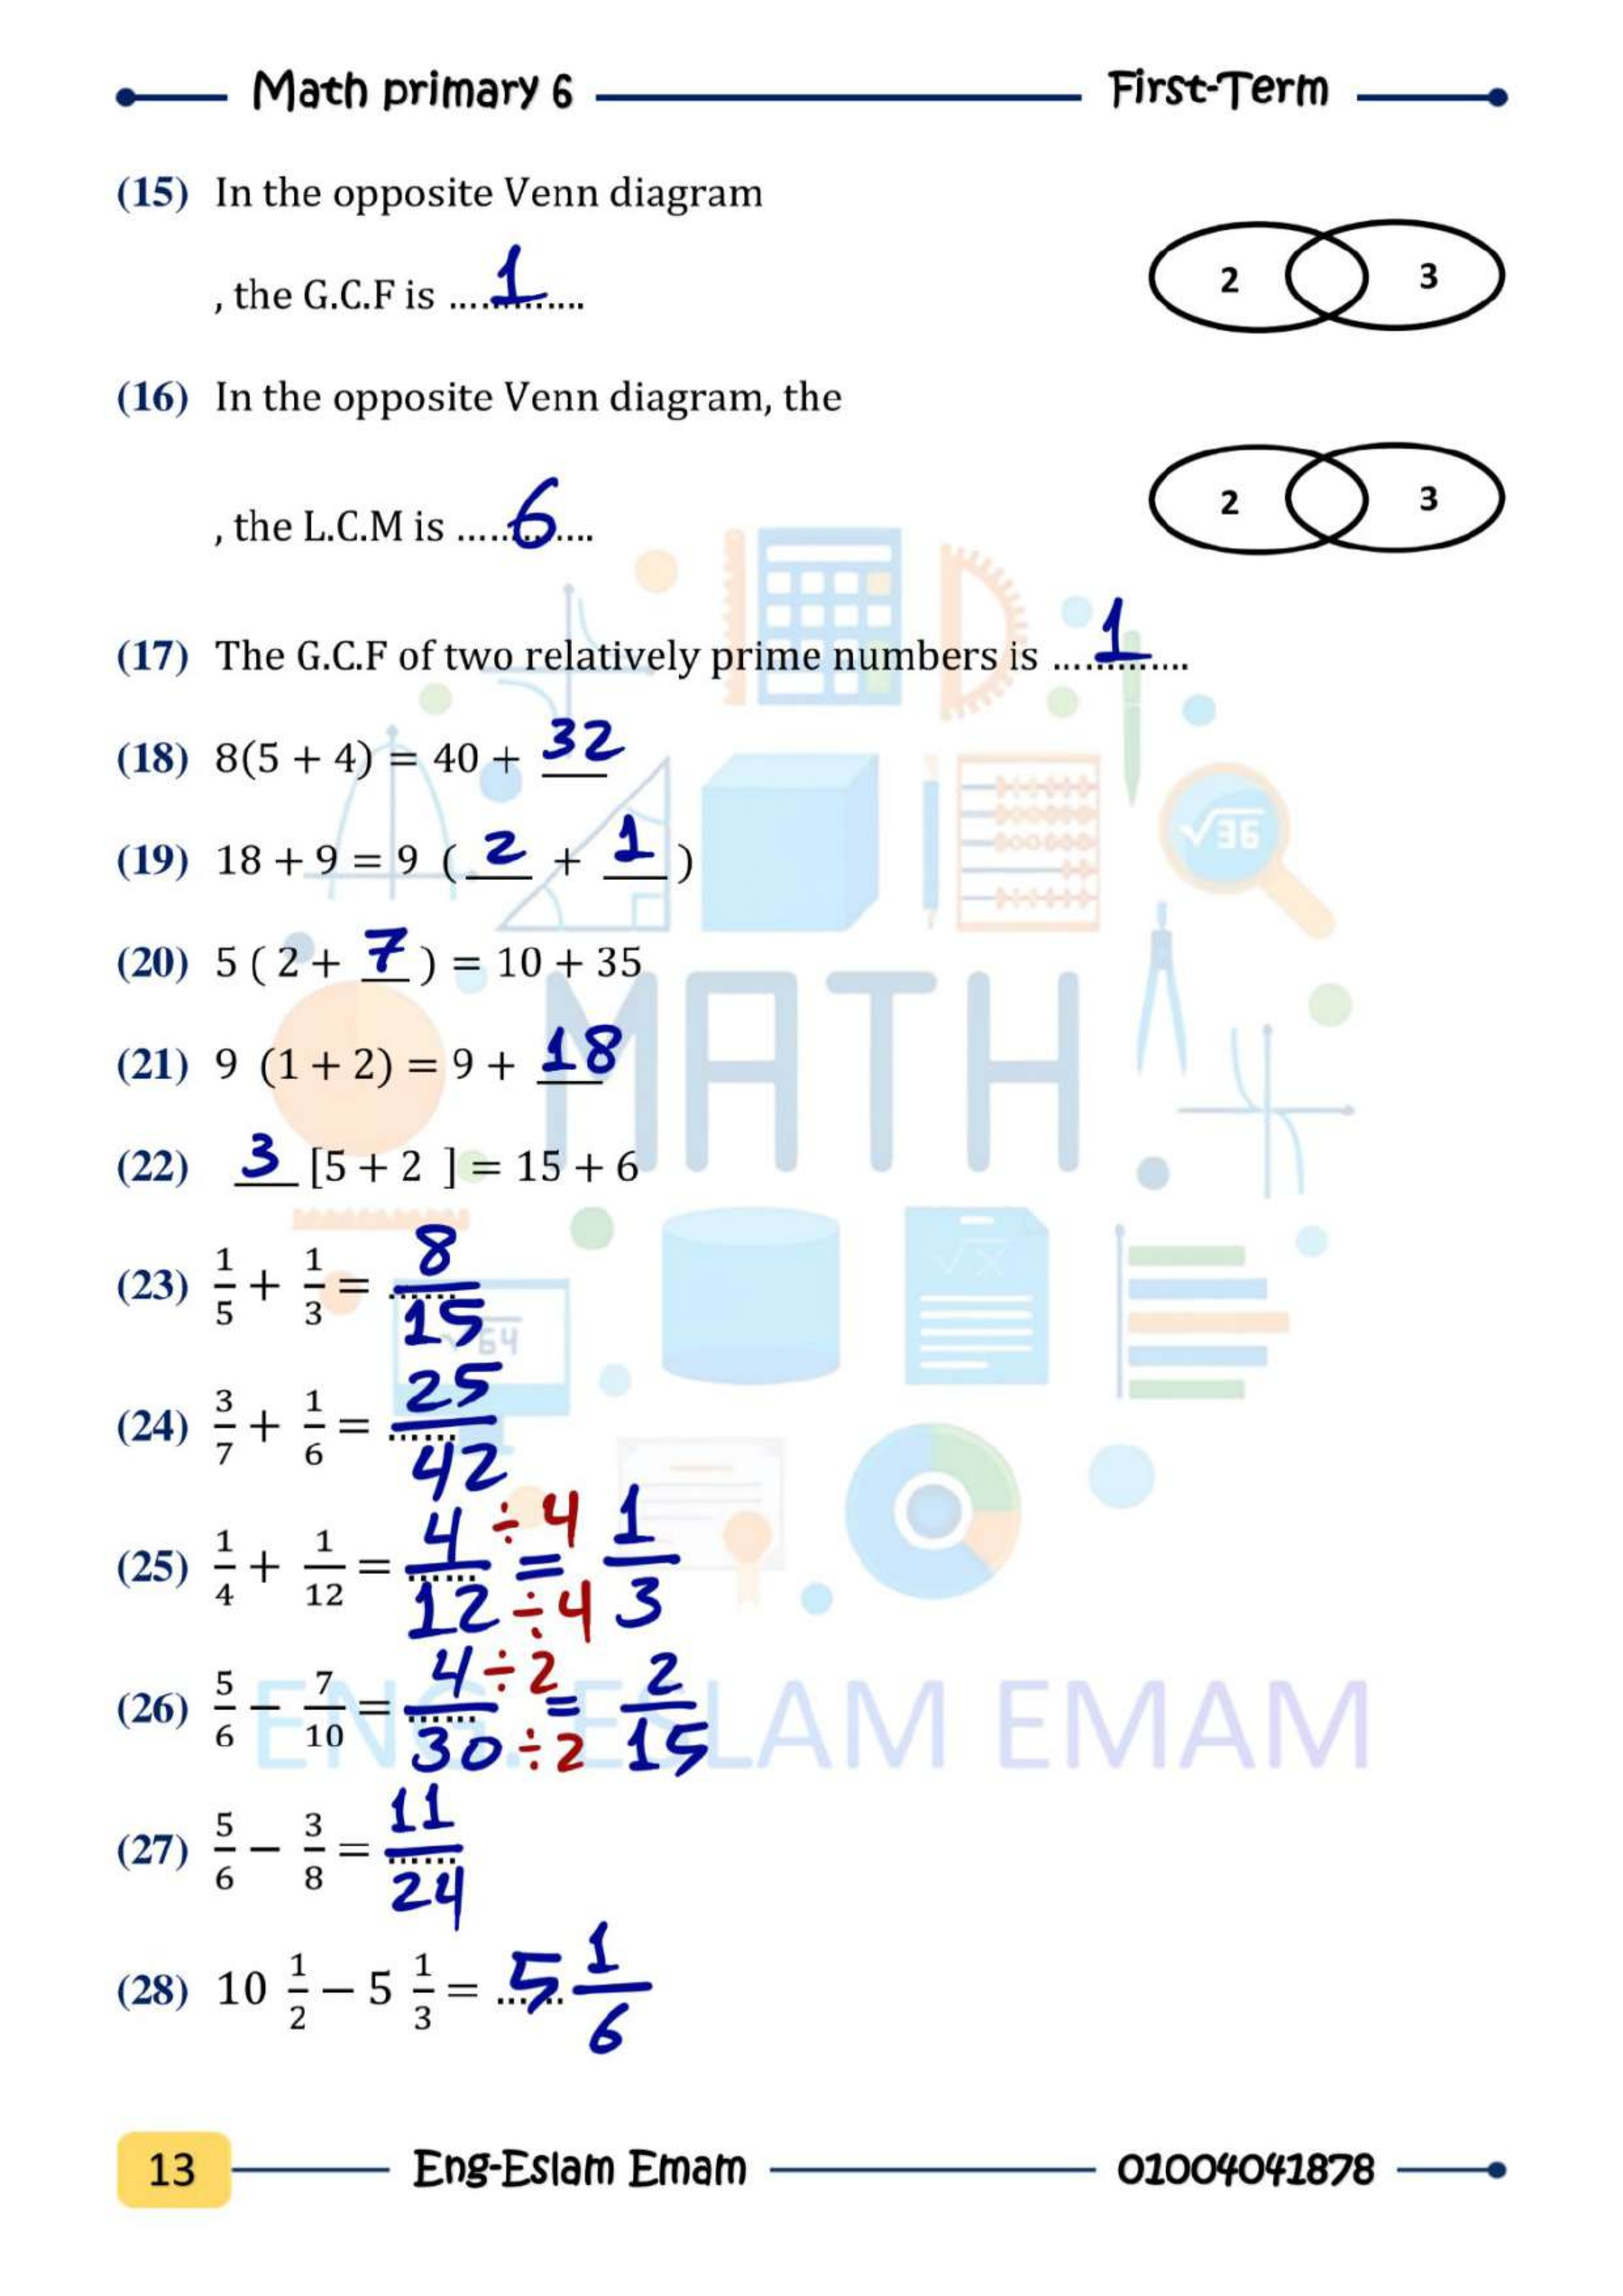 Math primary 6 First-Term
(15) In the opposite Venn diagram
, the G.C.F is ............. 1
2 3
(16) In the opposite Venn diagram, the
, the L.C.M is ............. 6
2 3
(17) The G.C.F of two relatively prime numbers is ............. 1
(18) 8(5 + 4) = 40 + 32
(19) 18 + 9 = 9 ( 2 + 1 )
√36
(20) 5 ( 2 + 7 ) = 10 + 35
MATH
(21) 9 (1 + 2) = 9 + 18
(22) 3 [5 + 2 ] = 15 + 6
√x
(23) 1/5 + 1/3 = 8/15
√64
(24) 3/7 + 1/6 = 25/42
(25) 1/4 + 1/12 = 4/12 ÷4/÷4 = 1/3
(26) 5/6 − 7/10 = 4/30 ÷2/÷2 = 2/15
ENG. ESLAM EMAM
(27) 5/6 − 3/8 = 11/24
(28) 10 1/2 − 5 1/3 = 5 1/6
13 Eng-Eslam Emam 01004041878